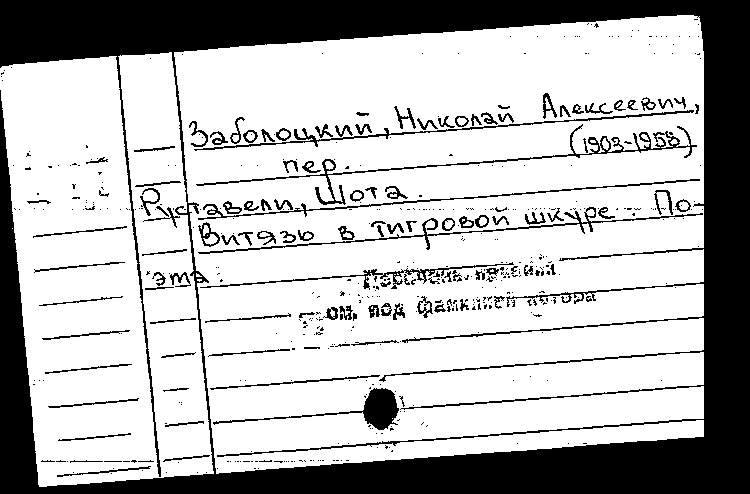 Заболоцкий, Николай Алексеевич,
(1903-1958)
пер.
Руставели, Шота.
Витязь в тигровой шкуре: По-
эма.
Перечень изданий
см. под фамилией автора